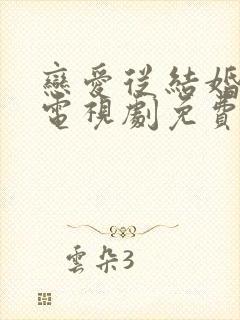 戀愛從結婚
電視劇免費
雲朵3